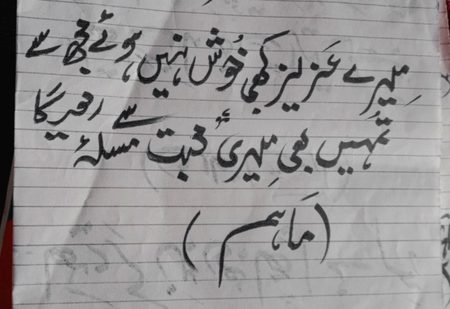 میرے عزیز کبھی خوش نہیں ہوئے مجھ سے
تمہیں بھی میری محبت سے مسلۂ رہیگا
(ماہم)